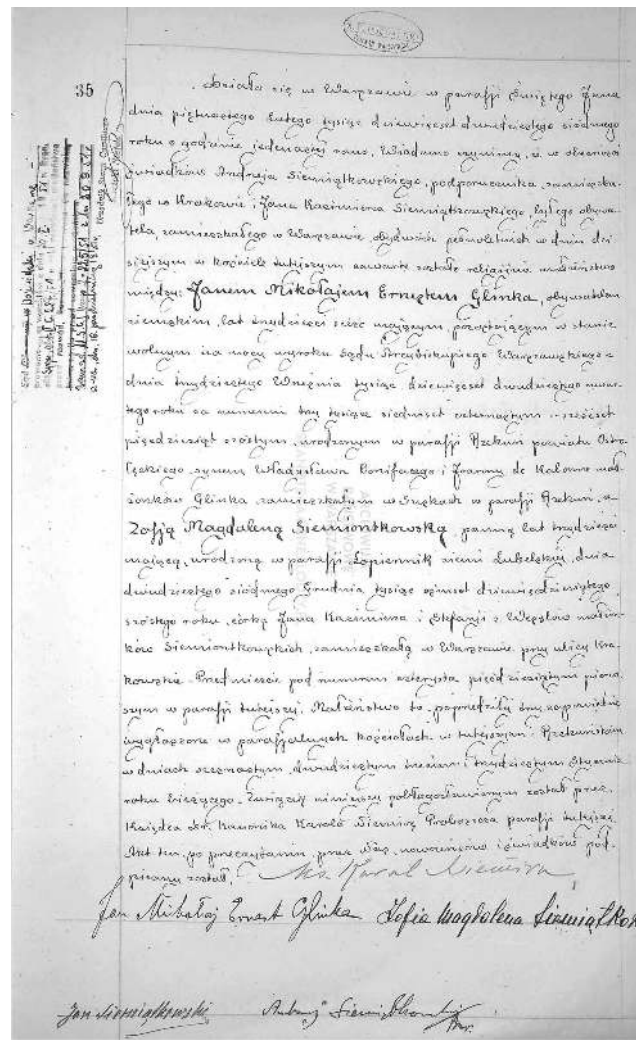 35
Działo się w Warszawie w parafji Świętego Jana
dnia piętnastego Lutego tysiąc dziewięćset dwudziestego siódmego
roku o godzinie jedenastej rano. Wiadomo czynimy, że w obecności
świadków Andrzeja Siemiątkowskiego, podporucznika, zamieszka-
łego w Krakowie i Jana Kazimierza Siemiątkowskiego, byłego obywa-
tela, zamieszkałego w Warszawie, obydwóch pełnoletnich w dniu dzi-
siejszym w kościele tutejszym zawarte zostało religijne małżeństwo
między: Janem Mikołajem Ernestem Glinka, obywatelem
ziemskim, lat trzydzieści sześć mającym, pozostającym w stanie
wolnym na mocy wyroku Sądu Arcybiskupiego Warszawskiego z
dnia trzydziestego Września tysiąc dziewięćset dwudziestego czwar-
tego roku za numerem trzy tysiące siedmset czternastym - sześćset
pięćdziesiąt szóstym, urodzonym w parafji Rzekuń powiatu Ostro-
łęckiego, synem Władysława Bonifacego i Joanny de Kalonne mał-
żonków Glinka, zamieszkałym w Suskach w parafji Rzekuń, a
Zofją Magdaleną Siemiontkowską, panną lat trzydzieści
mającą, urodzoną w parafji Łopiennik ziemi Lubelskiej, dnia
dwudziestego siódmego Grudnia tysiąc ośmset dziewięćdziesiątego
szóstego roku, córką Jana Kazimierza i Stefanji z Węzłów małżon-
ków Siemiontkowskich, zamieszkałą w Warszawie przy ulicy Kra-
kowskie-Przedmieście pod numerem czterysta pięćdziesiątym pierw-
szym w parafji tutejszej. Małżeństwo to poprzedziły trzy zapowiedzie
wygłoszone w parafjalnych kościołach w tutejszym i Rzekuńskim
w dniach szesnastym, dwudziestym trzecim i trzydziestym Stycznia
roku bieżącego. Związek niniejszy pobłogosławionym został przez
Księdza Kanonika Karola Niemirę Proboszcza parafji tutejszej.
Akt ten po przeczytaniu, przez Nas, nowożeńców i świadków pod-
pisany został.
Ks. Karol Niemira
Jan Mikołaj Ernest Glinka Zofia Magdalena Siemiątkow
Jan Siemiątkowski Andrzej Siemiątkowski